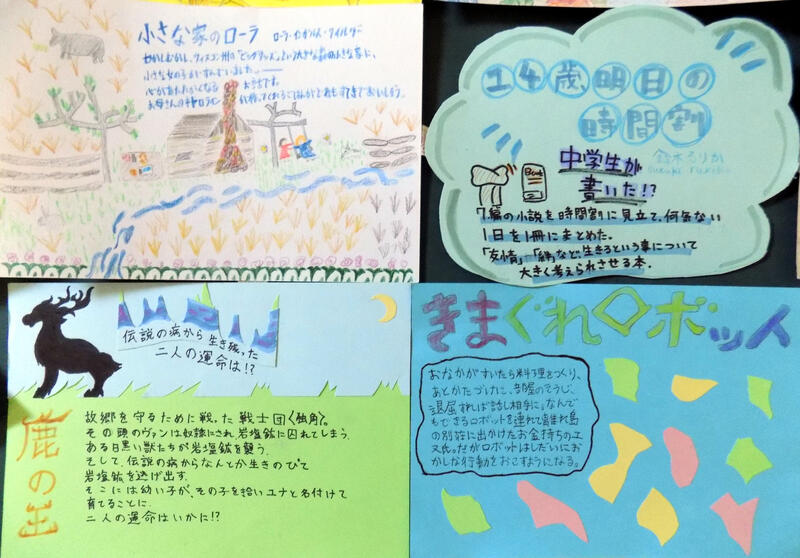 小さな家のローラ
ローラ・インガルス・ワイルダー
むかしむかし、ウィスコンシン州の「ビッグウッズ」という大きな森の小さな家に、
小さな女の子がすんでいました。
心があたたかくなる
お話です。
お母さんの
14歳、明日の
時間割
鈴木るりか
suzuki rurika
中学生が
書いた!?
7篇の小説を時間割に見立て、何気ない
1日を1冊にまとめた。
「友情」「絆」など、生きるという事について
大きく考えられさせる本。
伝説の病から生き残った
二人の運命は!?
鹿の王
故郷を守るために戦った戦士団〈独角〉。
その頭のヴァンは奴隷にされ岩塩鉱に囚れてしまう。
ある日黒い獣たちが岩塩鉱を襲う。
そして、伝説の病からなんとか生きのびて
岩塩鉱を逃げ出す。
そこには幼い子が、その子を拾いユナと名付けて
育てることに。
二人の運命はいかに!?
きまぐれロボット
おなかがすいたら料理をつくり、
あとかたづけに、部屋のそうじ、
退屈すれば話し相手に。なんで
もできるロボットを連れて離れ島
の別荘に出かけたお金持ちのエ
ヌ氏。だがロボットはしだいにお
かしな行動をおこすようになる。